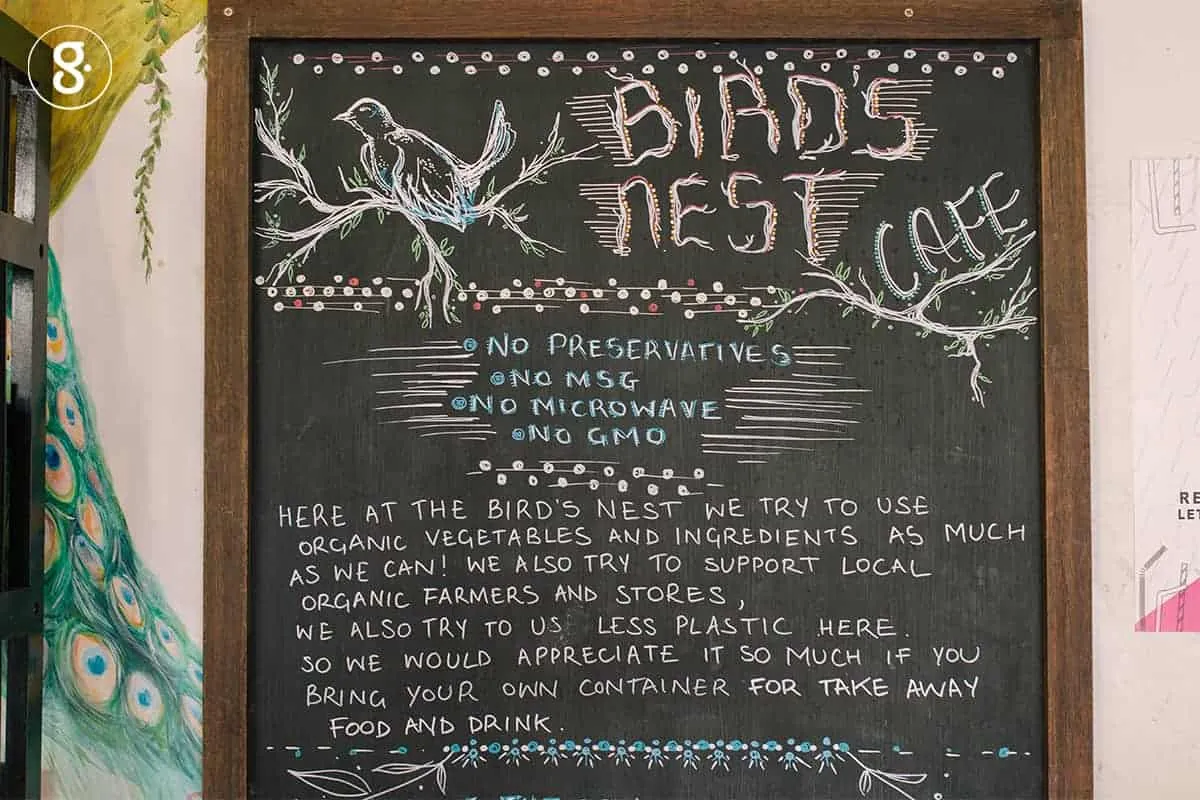 g.
BIRD'S
NEST
CAFE
NO PRESERVATIVES
NO MSG
NO MICROWAVE
NO GMO
HERE AT THE BIRD'S NEST WE TRY TO USE
ORGANIC VEGETABLES AND INGREDIENTS AS MUCH
AS WE CAN! WE ALSO TRY TO SUPPORT LOCAL
ORGANIC FARMERS AND STORES,
WE ALSO TRY TO US LESS PLASTIC HERE.
SO WE WOULD APPRECIATE IT SO MUCH IF YOU
BRING YOUR OWN CONTAINER FOR TAKE AWAY
FOOD AND DRINK.
RE
LET